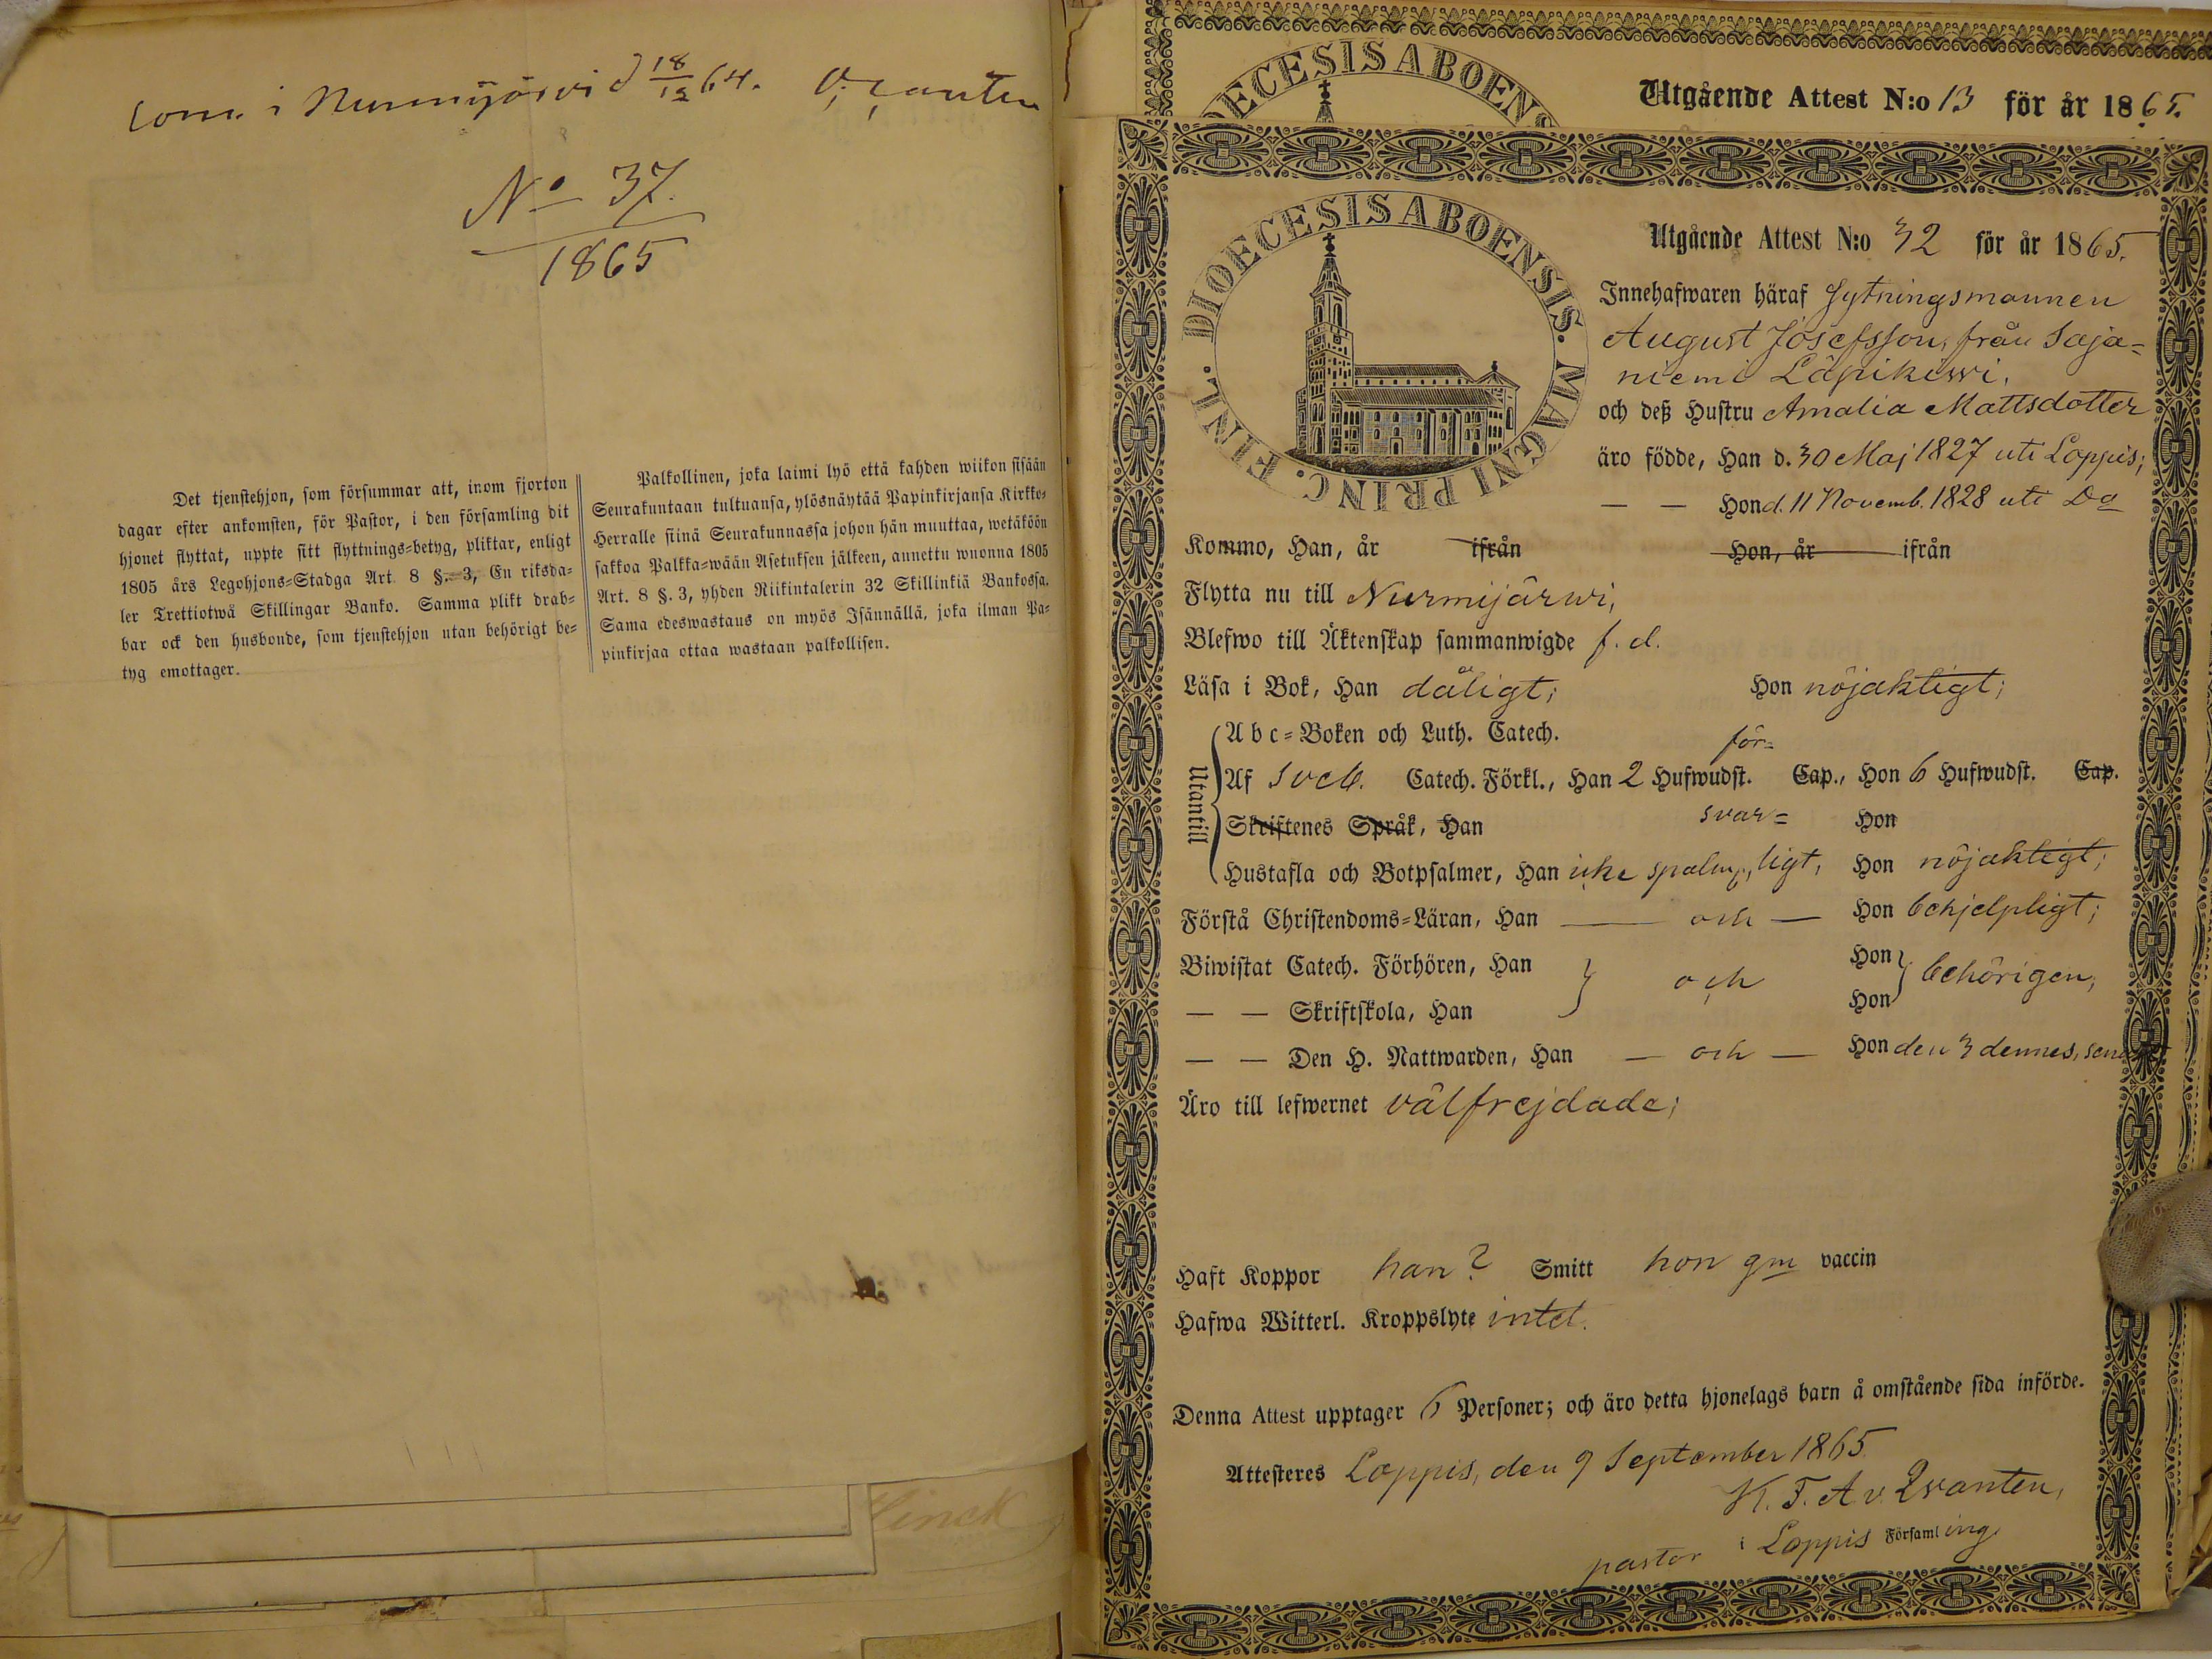 Com. i Nurmijärvi d 18/12 64.
No 37.
1865
Det tjenstehjon, som försummar att, inom fjorton
dagar efter ankomsten, för Pastor, i den församling dit
hjonet flyttat, uppte sitt flyttnings=betyg, pliktar, enligt
1805 års Legohjons=Stadga Art. 8 §. 3, En riksda=
ler Trettiotwå Skillingar Banko. Samma plikt drab=
bar ock den husbonde, som tjenstehjon utan behörigt be=
tyg emottager.
Palkollinen, joka laimi lyö että kahden wiikon sisään
Seurakuntaan tultuansa, ylösnäytää Papinkirjansa Kirkko=
Herralle siinä Seurakunnassa johon hän muuttaa, wetäköön
sakkoa Palkka=wään Asetuksen jälkeen, annettu wuonna 1805
Art. 8 §. 3, yhden Riikintalerin 32 Skillinkiä Bankossa.
Sama edeswastaus on myös Isännällä, joka ilman Pa=
pinkirjaa ottaa wastaan palkollisen.
DIOECESIS ABOENSIS
Utgående Attest N:o 13 för år 1865.
DIOECESIS ABOENSIS. MAGNI PRINC. FINL.
Utgående Attest N:o 32 för år 1865.
Innehafwaren häraf Sytningsmannen
August Josefsson, från Saja=
niemi Läpikissi,
och deß Hustru Amalia Mattsdotter
äro födde, Han d. 30 Maj 1827 uti Loppis;
— — Hon d. 11 Novemb. 1828 uti Do
Kommo, Han, år ifrån Hon, år ifrån
Flytta nu till Nurmijärwi,
Blefwo till Äktenskap sammanwigde f. d.
Läsa i Bok, Han dåligt; Hon nöjaktigt;
Utantill
Abc=Boken och Luth. Catech.
för=
Af Sveb. Catech. Förkl., Han 2 Hufwudst. Cap., Hon 6 Hufwudst. Cap.
Skriftenes Språk, Han svar= Hon
Hustafla och Botpsalmer, Han icke ligt, Hon nöjaktigt;
Förstå Christendoms=Läran, Han — och — Hon behjelpligt;
Biwistat Catech. Förhören, Han och Hon behörigen,
— — Skriftskola, Han Hon
— — Den H. Nattwarden, Han — och — Hon den 3 dennes,
Äro till lefwernet välfrejdade;
Haft Koppor han? Smitt hon gm vaccin
Hafwa Witterl. Kroppslyte intet.
Denna Attest upptager 6 Personer; och äro detta hjonelags barn å omstående sida införde.
Attesteres Loppis, den 9 September 1865.
K. T. A v. Qvanten,
pastor i Loppis Församling